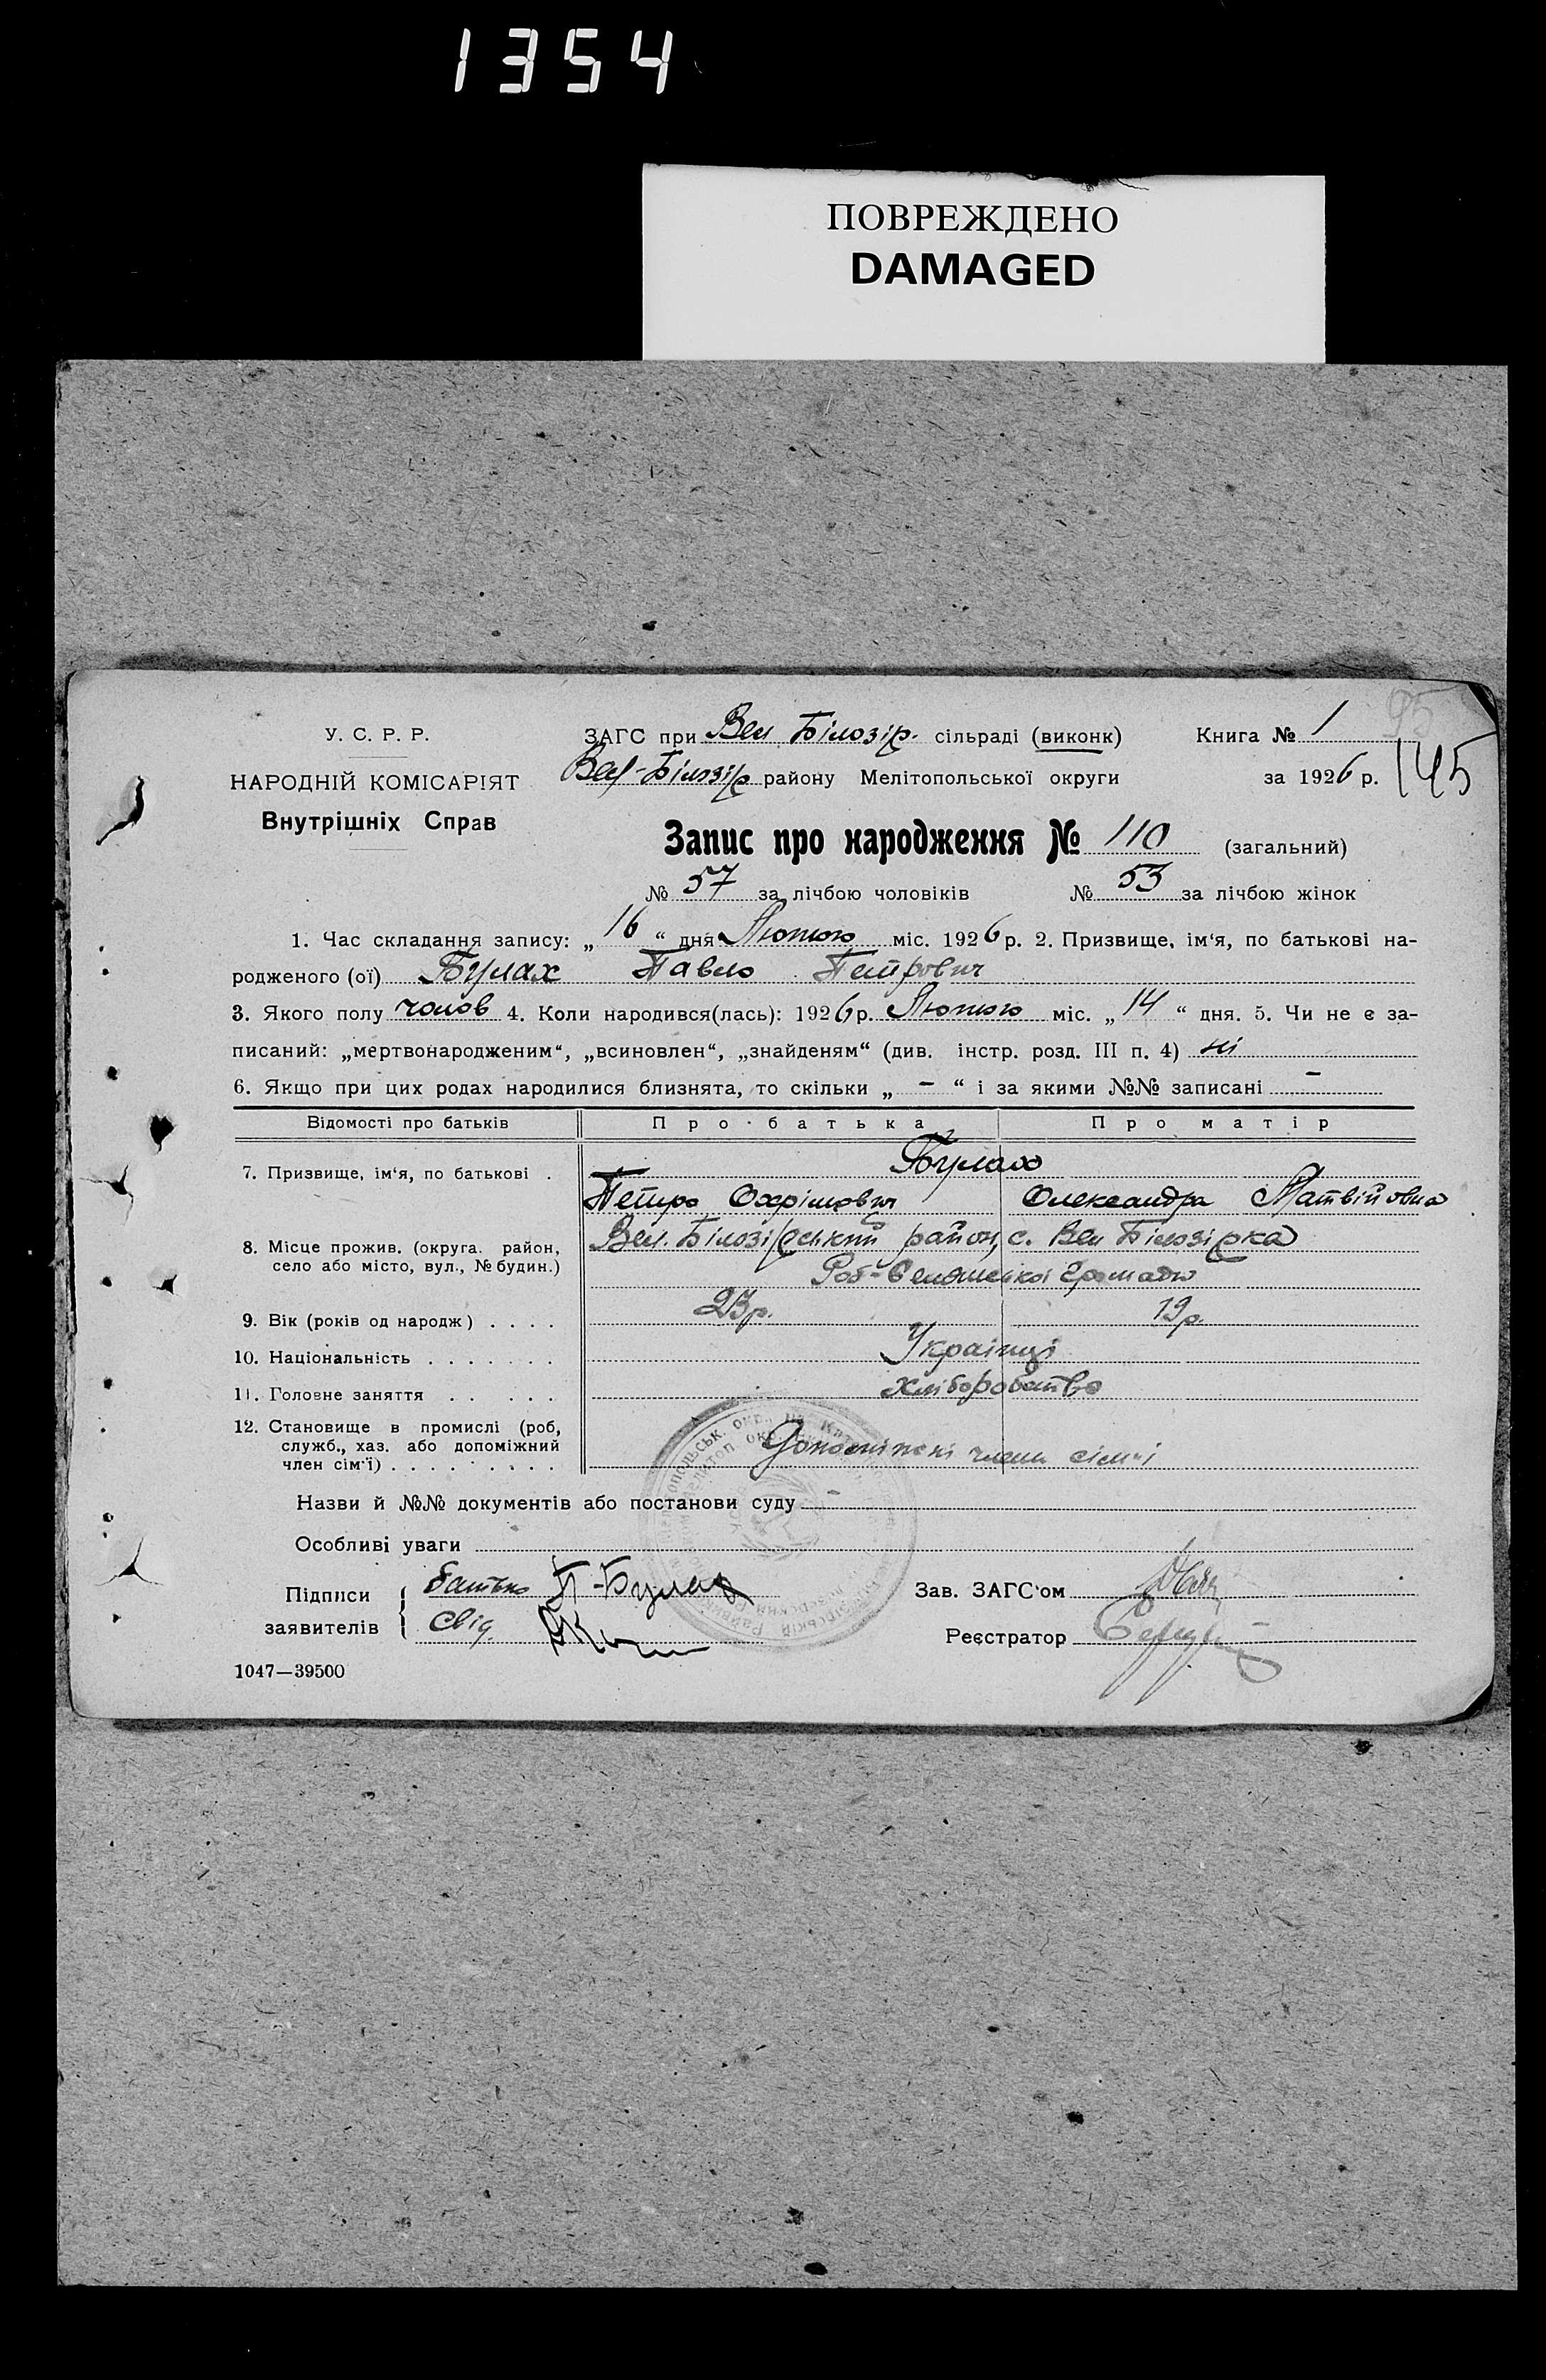 1354
ПОВРЕЖДЕНО
DAMAGED
95
145
У. С. Р. Р.
НАРОДНІЙ КОМІСАРІЯТ
Внутрішніх Справ
ЗАГС при Вел. Білозір. сільраді (виконк) Книга № 1
Вел-Білозір району Мелітопольської округи за 1926 р.
Запис про народження № 110 (загальний)
№ 57 за лічбою чоловіків № 53 за лічбою жінок
1. Час складання запису: „16“ дня Лютого міс. 1926 р. 2. Призвище, ім‘я, по батькові на-
родженого (ої) Булах Павло Петрович
3. Якого полу чолов 4. Коли народився(лась): 1926 р. Лютого міс. „14“ дня. 5. Чи не є за-
писаний: „мертвонародженим“, „всиновлен“, „знайденям“ (див. інстр. розд. III п. 4) ні
6. Якщо при цих родах народилися близнята, то скільки „ – “ і за якими №№ записані –
Відомості про батьків Про батька Про матір
7. Призвище, ім‘я, по батькові . Булахо
Петро Охрімович Олександра Матвійовна
8. Місце прожив. (округа. район, село або місто, вул., № будин.) Вел. Білозірський район, с. Вел Білозірка
Роб-Селянської Громади
9. Вік (років од народж) . . . . 23 р. 19 р.
10. Національність . . . . . . . Українці
11. Головне заняття . . . . . Хліборобство
12. Становище в промислі (роб, служб., хаз. або допоміжний член сім‘ї) . . . . . . . . . Допоміжні члени сімьї
Назви й №№ документів або постанови суду –
Особливі уваги
Підписи заявителів { батько П-Булах
Свід.
Зав. ЗАГС‘ом
Реєстратор
1047—39500